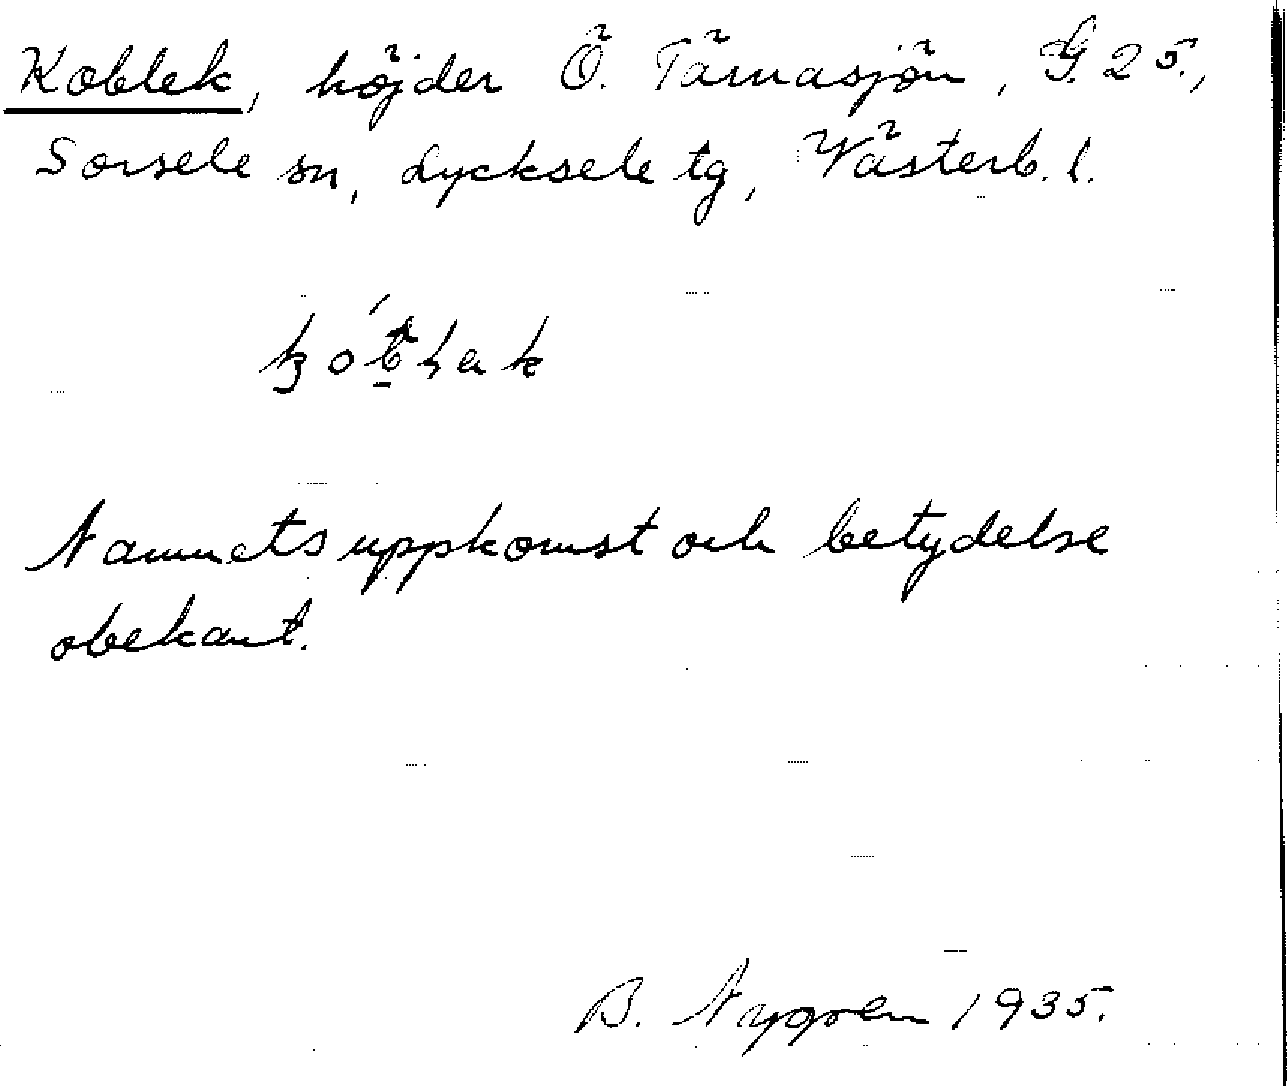 Koblek, höjder Ö. Tärnasjön, G. 25.,
Sorsele sn, Lycksele tg, Västerb. l.
Namnets uppkomst och betydelse
obekant.
B. Nygren 1935.